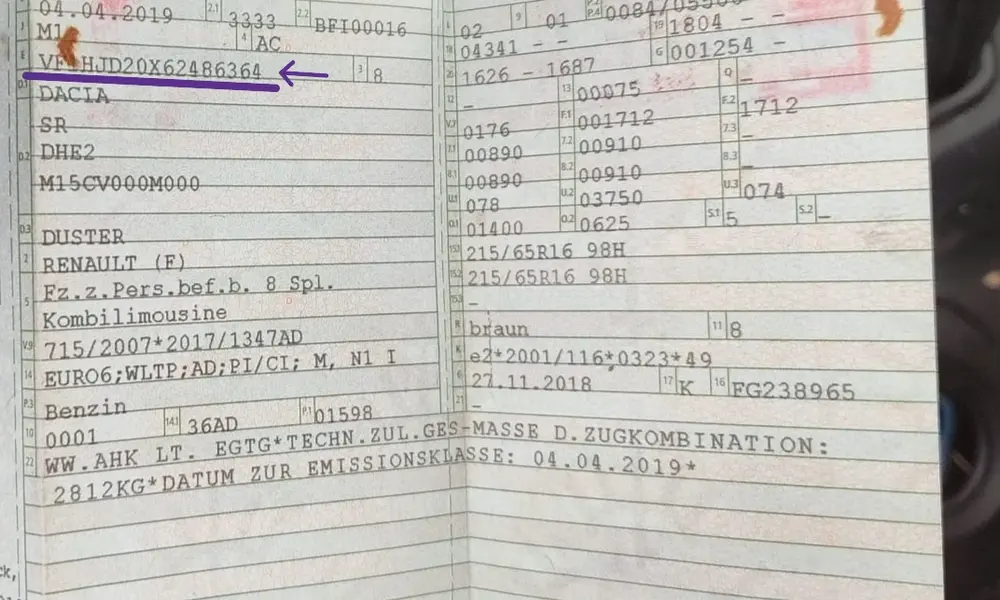 04.04.2019 2.1 3333 2.2 BFI00016
J M1 4 AC
E HJD20X62486364 3 8
D.1 DACIA
SR
D.2 DHE2
M15CV000M000
D.3 DUSTER
2 RENAULT (F)
5 Fz.z.Pers.bef.b. 8 Spl.
Kombilimousine
V.9 715/2007*2017/1347AD
14 EURO6;WLTP;AD;PI/CI; M, N1 I
P.3 Benzin
10 0001 14.1 36AD P.1 01598
L 02 9 01 P.4 0084/
18 04341 - - 19 1804 - -
20 1626 - 1687 G 001254 -
12 - 13 00075 Q -
V.7 0176 F.1 001712 F.2 1712
7.1 00890 7.2 00910 7.3 -
8.1 00890 8.2 00910 8.3 -
U.1 078 U.2 03750 U.3 074
O.1 01400 O.2 0625 S.1 5 S.2 -
15.1 215/65R16 98H
15.2 215/65R16 98H
15.3 -
R braun 11 8
K e2*2001/116*0323*49
6 27.11.2018 17 K 16 FG238965
21 -
22 WW.AHK LT. EGTG*TECHN.ZUL.GES-MASSE D.ZUGKOMBINATION:
2812KG*DATUM ZUR EMISSIONSKLASSE: 04.04.2019*